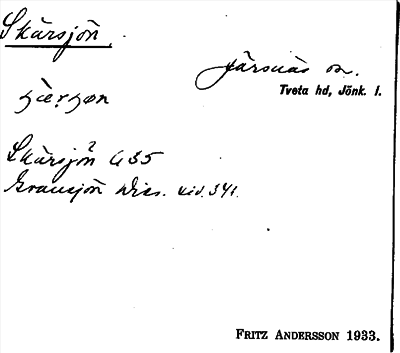 Skärsjön.
Järsnäs sn.
Tveta hd, Jönk. l.
Skärsjön? G 35
Gransjön Wies. vid. 341.
FRITZ ANDERSSON 1933.